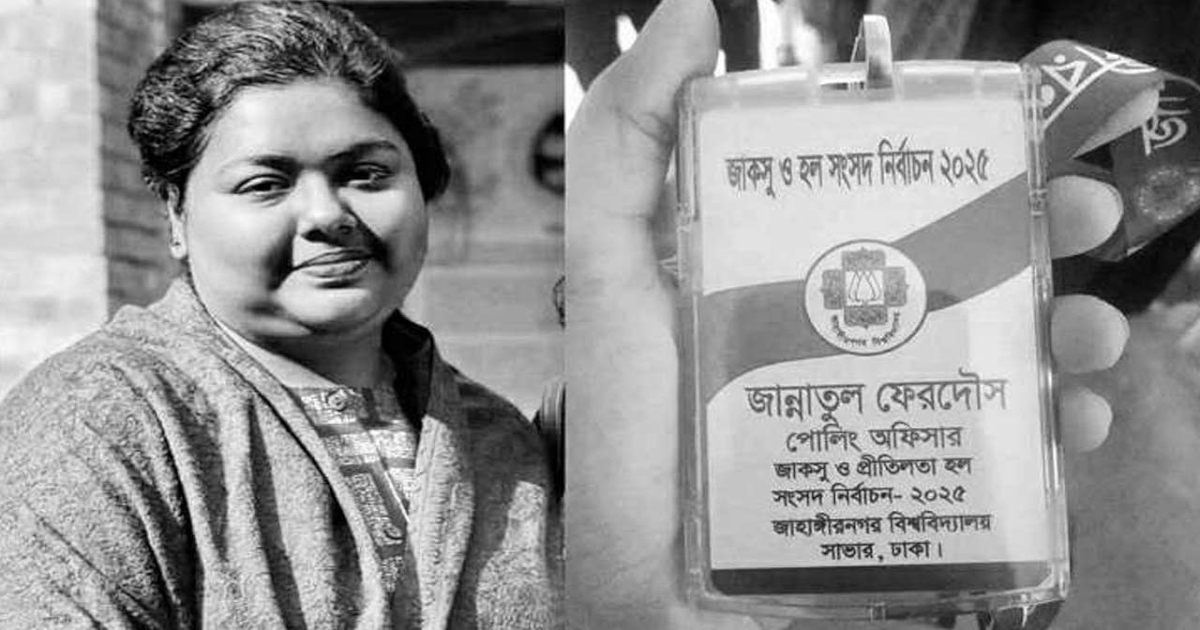 জাকসু ও হল সংসদ নির্বাচন ২০২৫
জান্নাতুল ফেরদৌস
পোলিং অফিসার
জাকসু ও প্রীতিলতা হল
সংসদ নির্বাচন- ২০২৫
জাহাঙ্গীরনগর বিশ্ববিদ্যালয়
সাভার, ঢাকা।